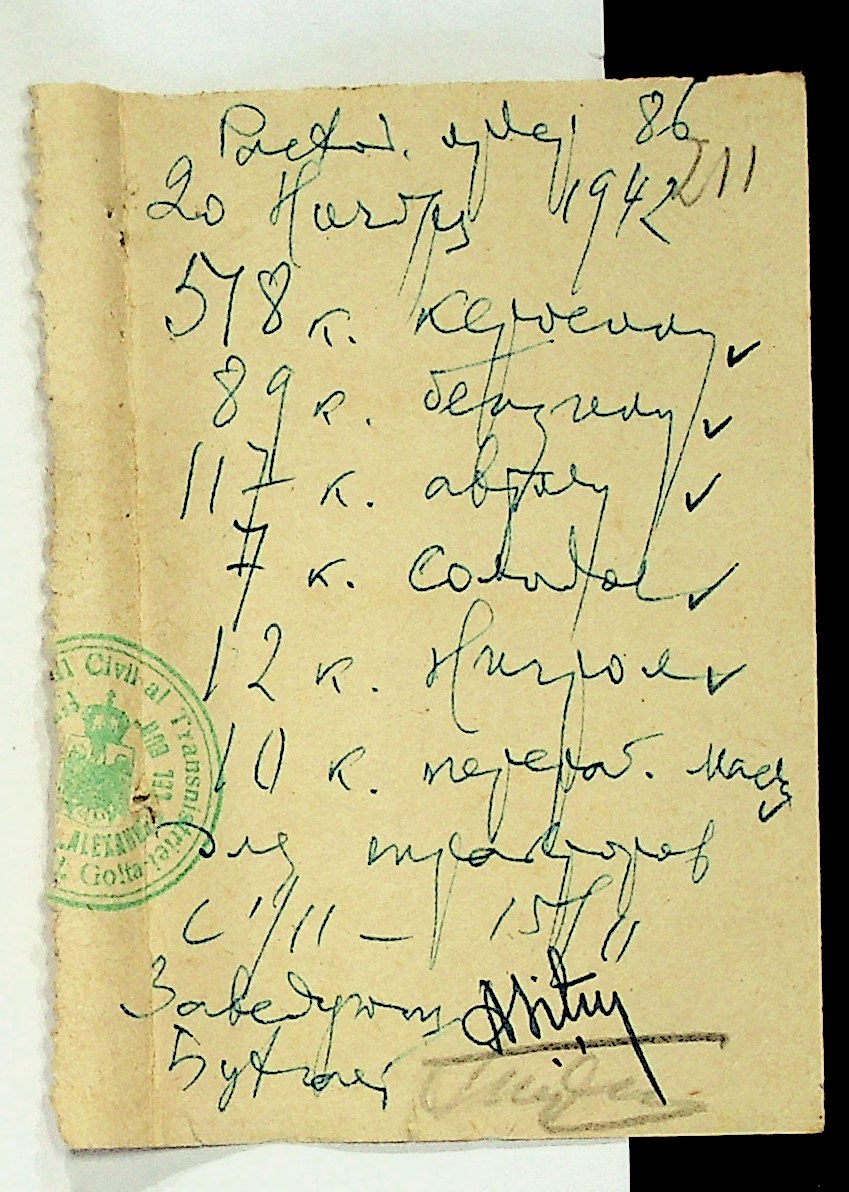 Расход. ордер 86
211
20 Ноября 1942
518 к. керосину
89 к. бензину
117 к. автолу
7 к. Солидол
12 к. Нигрол
10 к. перераб. масл
для тракторов
С 1/11 – 15/11
Заведующ
Бухгалтер
Civil al Transnistriei
ALEXAN
Golta